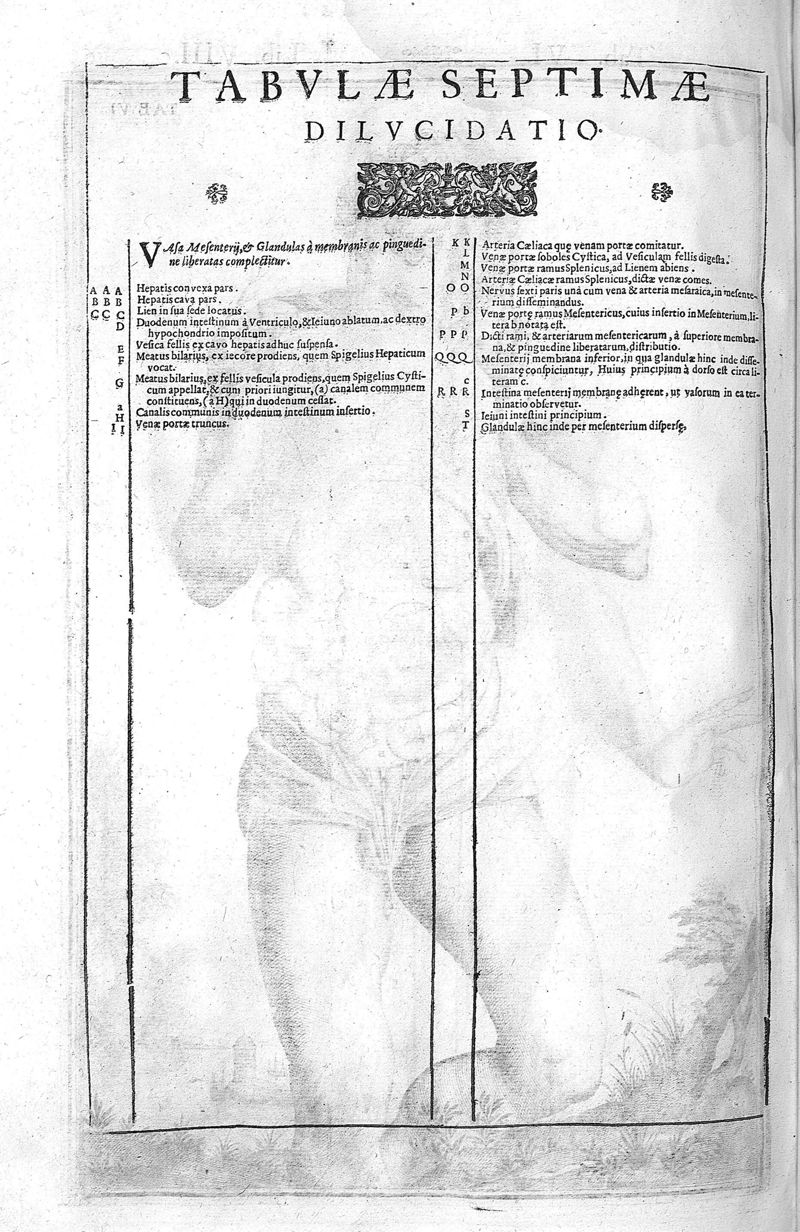 TABVLÆ SEPTIMÆ
DILVCIDATIO.
VAsa Mesenterij, & Glandulas à membranis ac pinguedi-
ne liberatas complectitur.
A A A Hepatis convexa pars.
B B B Hepatis cava pars.
C C C Lien in sua sede locatus.
D Duodenum intestinum à Ventriculo, & Ieiuno ablatum. ac dextro
hypochondrio impositum.
E Vesica fellis ex cavo hepatis adhuc suspensa.
F Meatus bilarius, ex iecore prodiens, quem Spigelius Hepaticum
vocat.
G Meatus bilarius, ex fellis vesicula prodiens, quem Spigelius Cysti-
cum appellat, & cum priori iungitur, (a) canalem communem
constituens, (a H) qui in duodenum cessat.
a H Canalis communis in duodenum intestinum insertio.
I I Venæ portæ truncus.
K K Arteria Cæliaca quę venam portæ comitatur.
L Venæ portæ soboles Cystica, ad Vesiculam fellis digesta.
M Venæ portæ ramus Splenicus, ad Lienem abiens.
N Arteriæ Cæliacæ ramus Splenicus, dictæ venæ comes.
O O Nervus sexti paris unà cum vena & arteria mesaraica, in mesente-
rium disseminandus.
P b Venæ portę ramus Mesentericus, cuius insertio in Mesenterium, li-
tera b notata est.
P P P Dicti rami, & arteriarum mesentericarum, à superiore membra-
na, & pinguedine liberatarum, distributio.
Q Q Q Mesenterij membrana inferior, in qua glandulæ hinc inde disse-
minatę conspiciuntur, Huius principium à dorso est circa li-
c teram c.
R R R Intestina mesenterij membranę adherent, ut vasorum in ea ter-
minatio observetur.
S Ieiuni intestini principium.
T Glandulæ hinc inde per mesenterium dispersę,